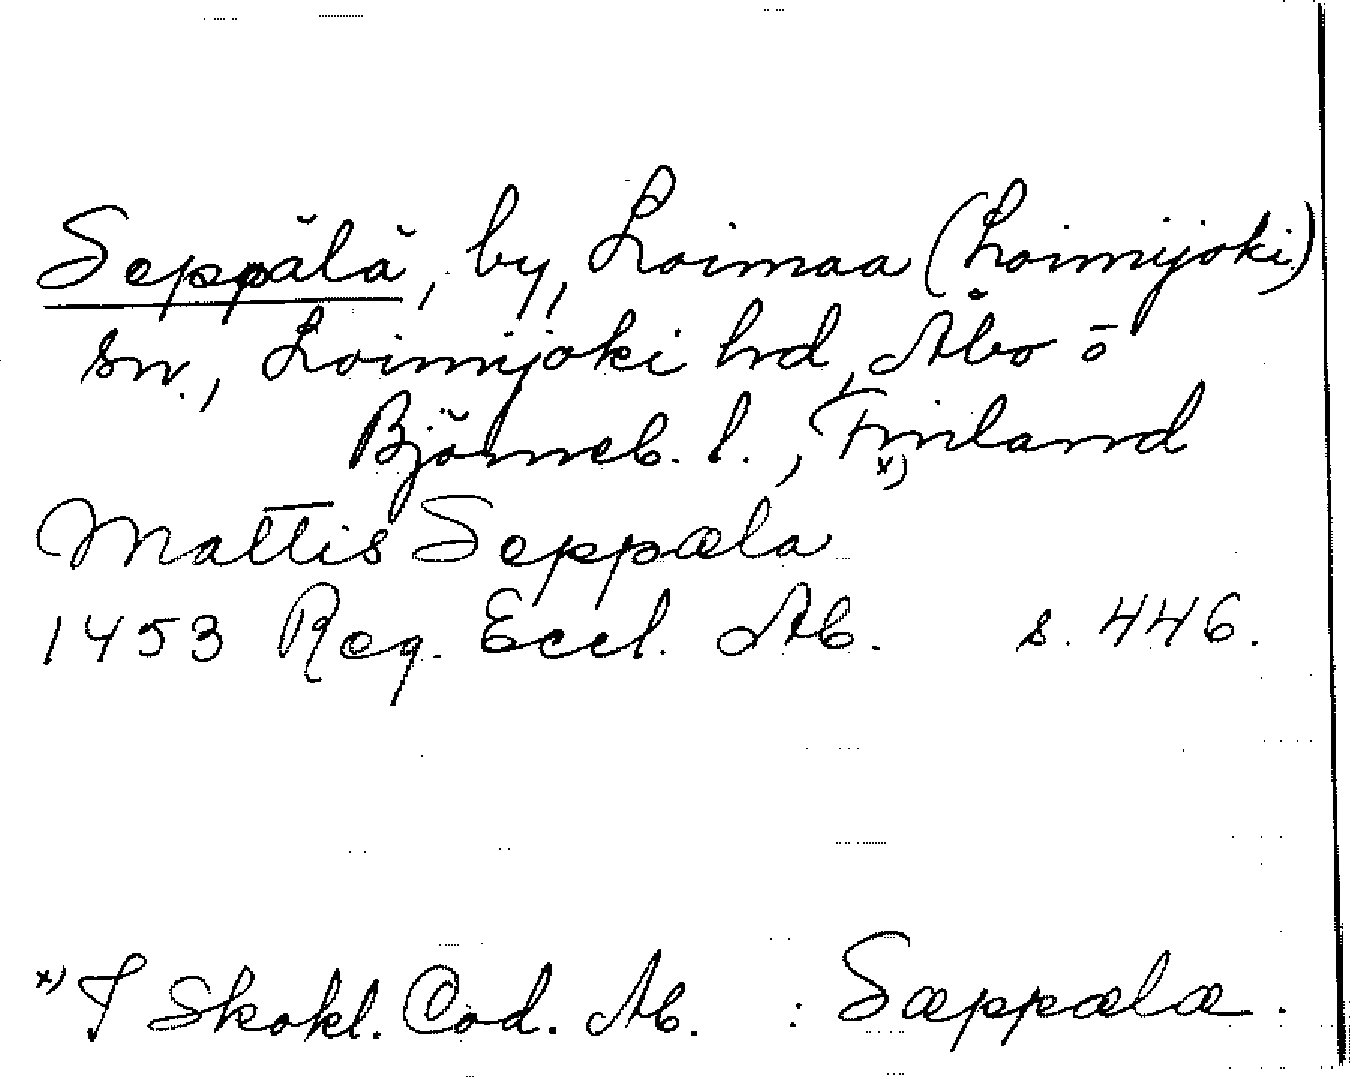 Seppälä, by, Loimaa (Loimijoki)
sn., Loimijoki hd, Åbo o
Björneb. l., Finland
x)
Mattis Seppæla
1453 Reg. Eccl. Ab. s. 446.
x) I Skokl. Cod. Ab. : Sæppælæ.